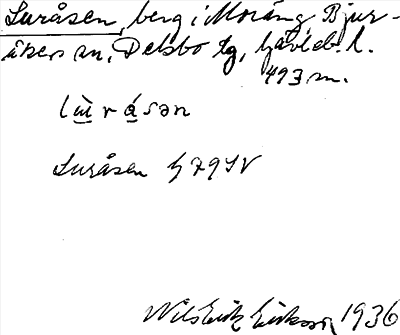 Luråsen, berg i Moräng, Bjur-
åkers sn, Delsbo tg, Gävleb. l.
493 m.
lùrásən
Luråsen G79SV
Nils Erik Eriksson 1936